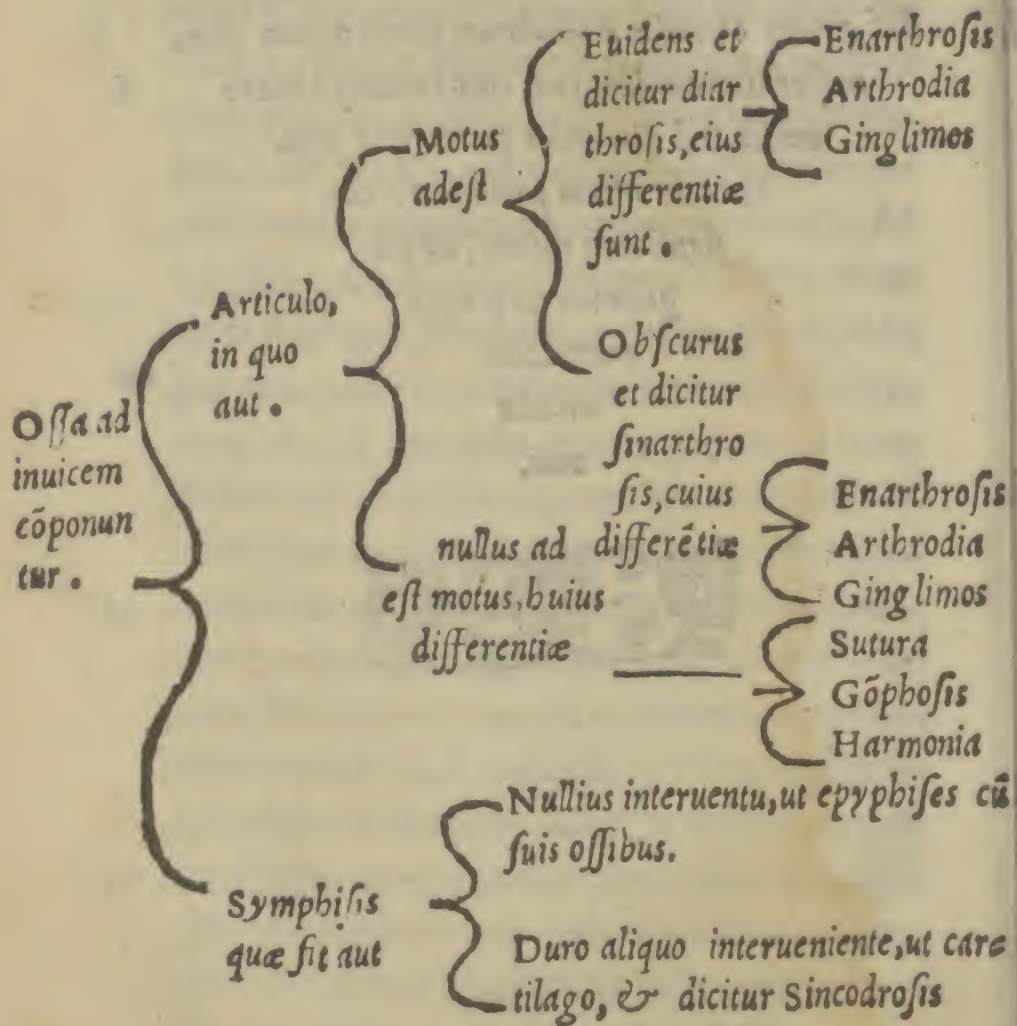 Oſſa ad
inuicem
cōponun
tur .
Articulo,
in quo
aut .
Motus
adeſt
Euidens et
dicitur diar
throſis, eius
differentiæ
ſunt .
Enarthroſis
Arthrodia
Ginglimos
Obſcurus
et dicitur
ſinarthro
ſis, cuius
differētiæ
Enarthroſis
Arthrodia
Ginglimos
nullus ad
eſt motus, huius
differentiæ
Sutura
Gōphoſis
Harmonia
Symphiſis
quæ fit aut
Nullius interuentu, ut epyphiſes cū
ſuis oſſibus.
Duro aliquo interueniente, ut care
tilago, & dicitur Sincodroſis